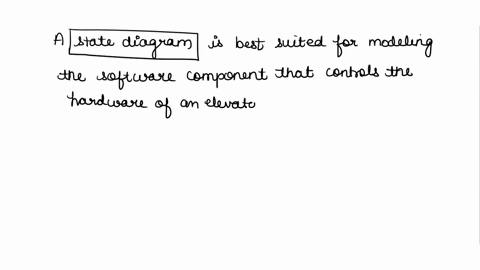 A state diagram is best suited for modeling
the software component that controls the
hardware of an elevato